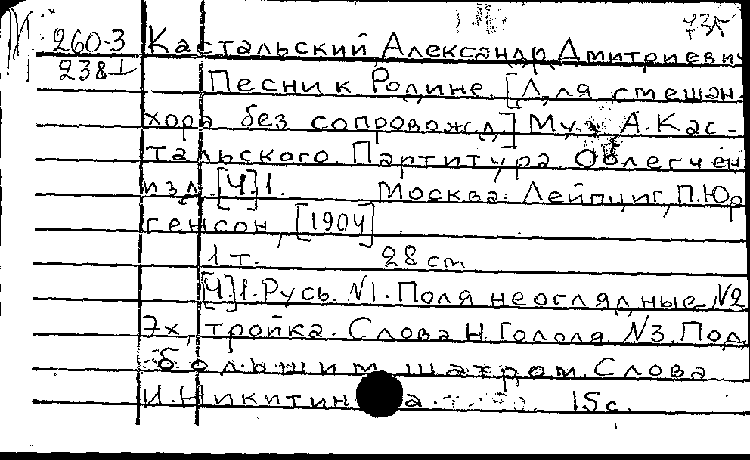 735
260-3 Кастальский, Александр Дмитриеви
238 Песни к Родине. [Для смешан.
хора без сопровожд.] Муз. А. Кас-
тальского. Партитура. Облегчен
изд. [Ч] 1. Москва. Лейпциг, П. Юр
генсон, [1904]
1 т. 28 cm
[Ч] 1. Русь. №1. Поля неоглядные №2
Эх, тройка. Слова Н. Гоголя №3. Под
большим шатром. Слова
И. Никитина. 15 с.